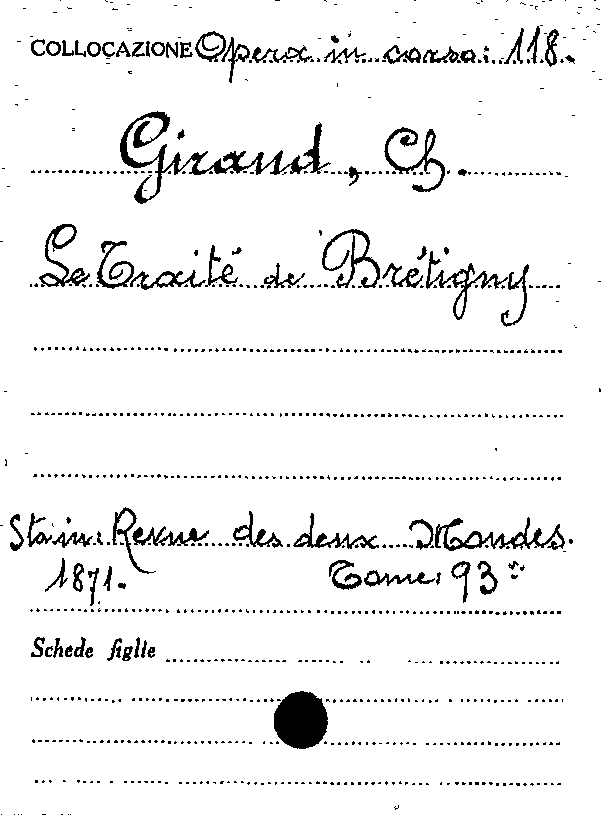 COLLOCAZIONE Opera in corso: 118.
Giraud, Ch.
Le Traité de Brétigny
Sta in: Revue des deux Mondes.
1871. Tome: 93°
Schede figlie